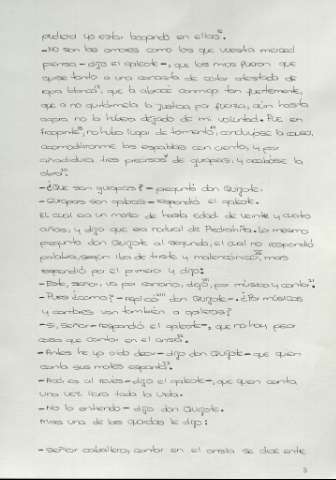 pudiera yo estar bogando en ellas.
-No son los amores como los que vuestra merced
piensa - dijo el galeote -, que los míos fueron que
quise tanto a una canasta de colar atestada de
ropa blanca, que la abracé conmigo tan fuertemente,
que a no quitármela la justicia por fuerza, aún hasta
agora no la hubiera dejado de mi voluntad. Fue en
fragante, no hubo lugar de tormento, concluyose la causa,
acomodáronme las espaldas con ciento, y por
añadidura tres precisos de gurapas, y acabóse la
obra.
-¿Qué son gurapas? - preguntó don Quijote.
-Gurapas son galeras - respondió el galeote.
El cual era un mozo de hasta edad de veinte y cuatro
años, y dijo que era natural de Piedrahíta. Lo mesmo
preguntó don Quijote al segundo, el cual no respondió
palabra, según iba de triste y malencónico, mas
respondió por él primero y dijo:
-Este, señor, va por canario, digo, por músico y cantor.
-¿Pues cómo? - replicó don Quijote -. ¿Por músicos
y cantores van también a galeras?
-Sí, señor - respondió el galeote -, que no hay peor
cosa que cantar en el ansia.
-Antes he yo oído decir - dijo don Quijote - que quien
canta sus males espanta.
-Acá es al revés - dijo el galeote -, que quien canta
una vez llora toda la vida.
-No lo entiendo - dijo don Quijote.
Mas una de las guardas le dijo:
-Señor caballero, cantar en el ansia se dice entre